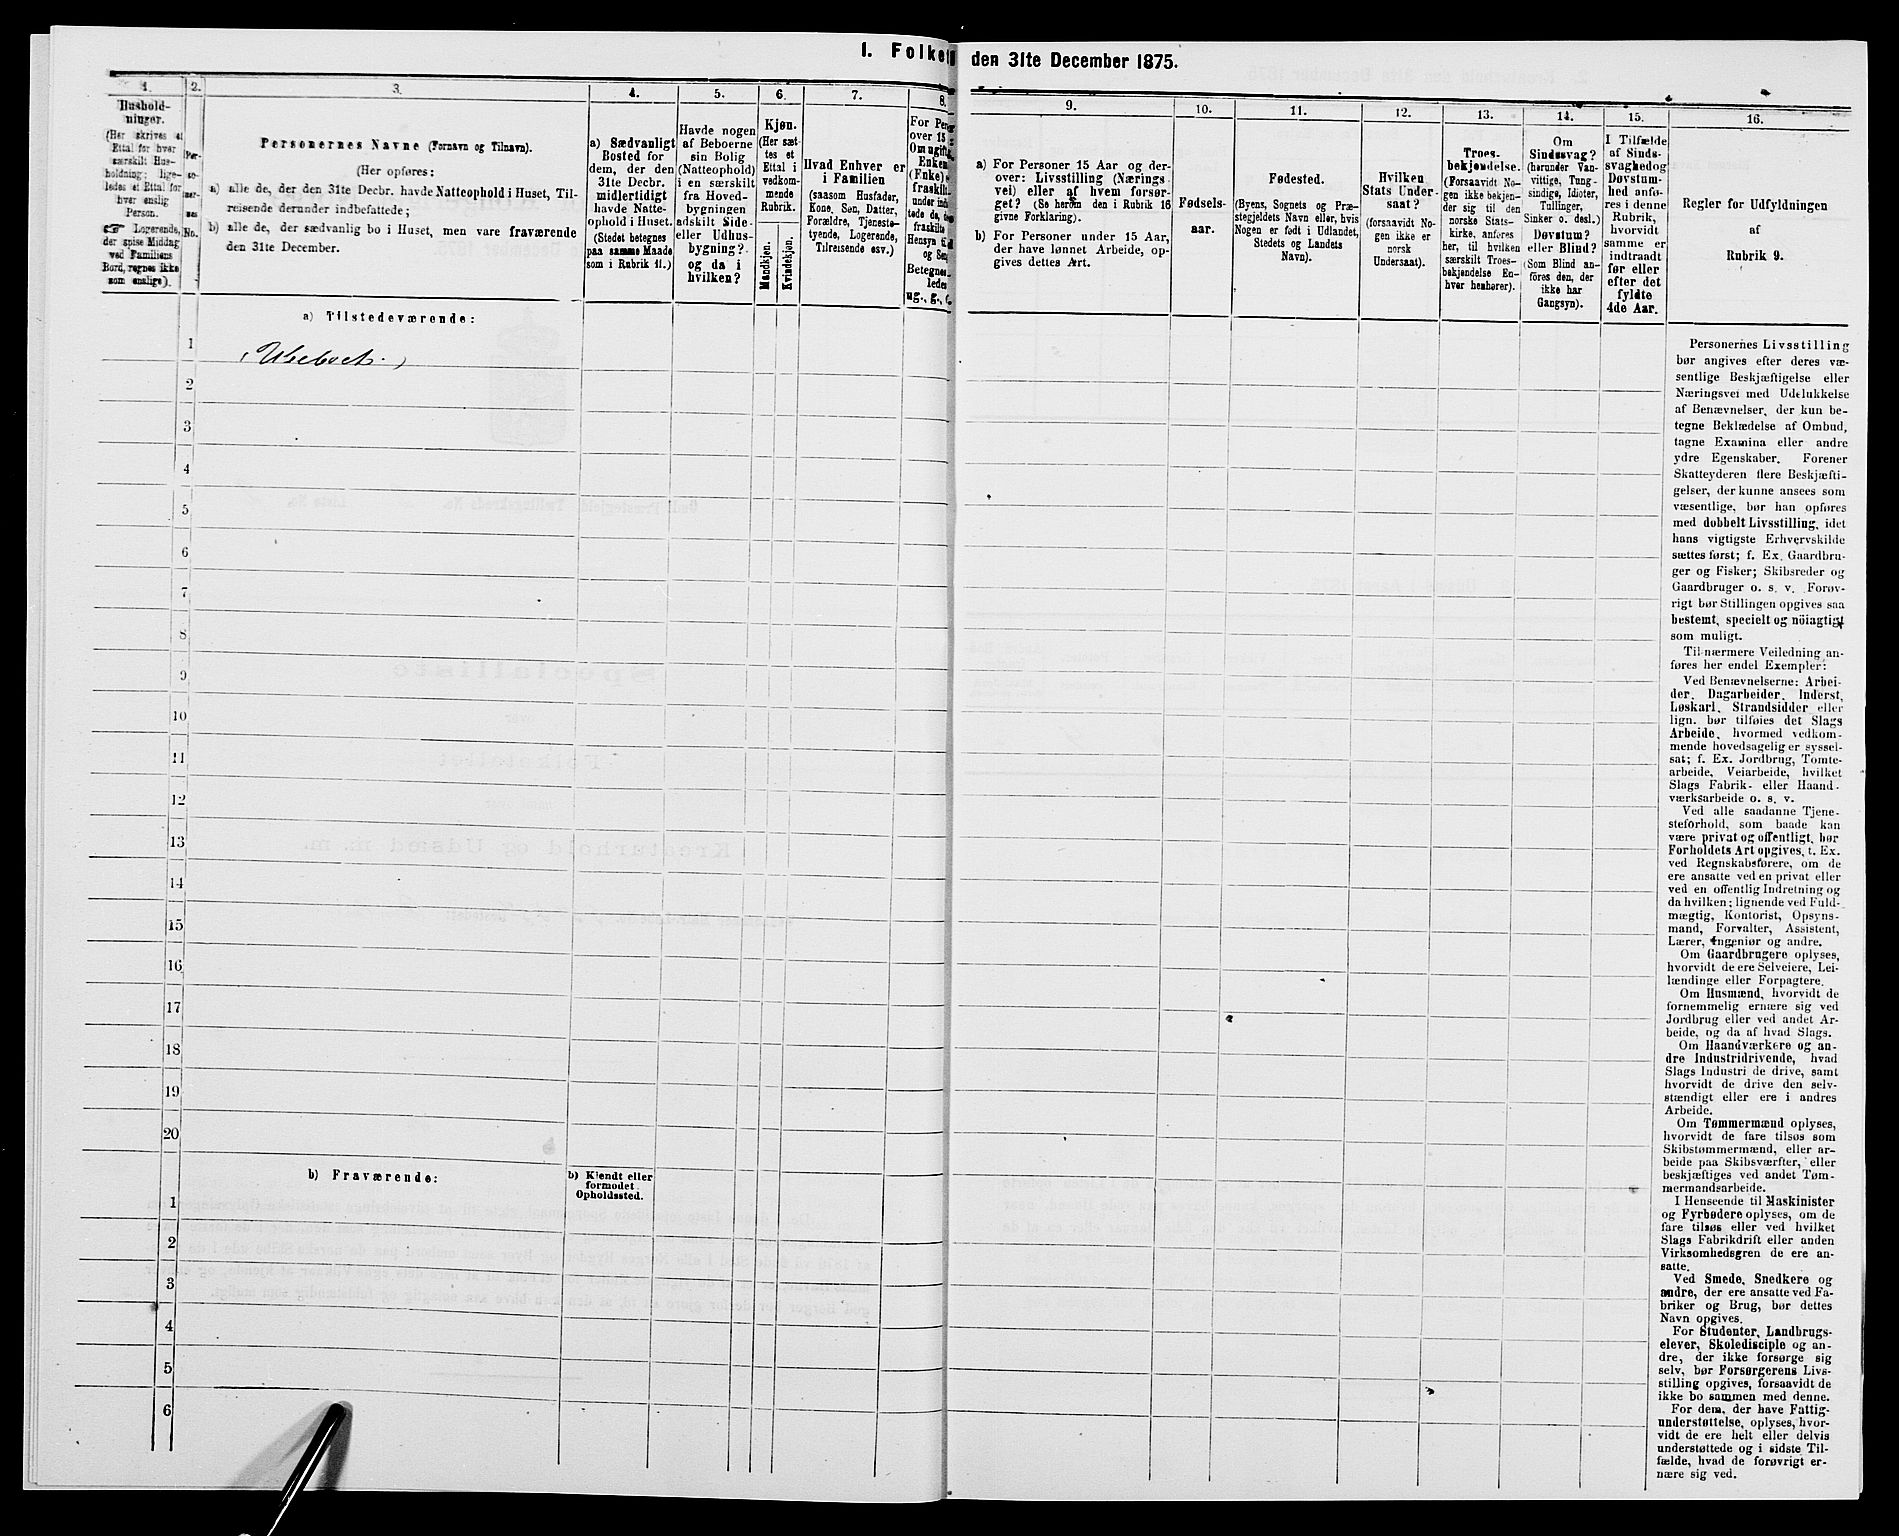 I. Folket
den 31te December 1875.
1.
Hushold-
ninger.
(Her skrives et
Ettal for hver
særskilt Hus-
holdning; lige-
ledes et Ettal for
hver enslig
Person.
☞ Logerende,
der spise Middag
ved Familiens
Bord, regnes ikke
som enslige).
2.
Per-
so-
ner-
nes
No.
3.
Personernes Navne (Fornavn og Tilnavn).
(Her opføres:
a) alle de, der den 31te Decbr. havde Natteophold i Huset, Til-
reisende derunder indbefattede;
b) alle de, der sædvanlig bo i Huset, men vare fraværende
den 31te December.
4.
a) Sædvanligt
Bosted for
dem, der den
31te Decbr.
midlertidigt
havde Natte-
ophold i Huset.
(Stedet betegnes
paa samme Maade
som i Rubrik 11.)
5.
Havde nogen
af Beboerne
sin Bolig
(Natteophold)
i en særskilt
fra Hoved-
bygningen
adskilt Side-
eller Udhus-
bygning?
og da i
hvilken?
6.
Kjøn.
(Her sæt-
tes et
Ettal i
vedkom-
mende
Rubrik.
Mandkjøn.
Kvindekjøn.
7.
Hvad Enhver er
i Familien
(saasom Husfader,
Kone, Søn, Datter,
Forældre, Tjeneste-
tyende, Logerende,
Tilreisende osv.)
8.
For Per
over 15
Om ugift
Enken
(Fnke)
fraskilt
under ind
tede de,
fraskilte
Hensyn til
og Sen
Betegnes
ledes
ug., g.,
9.
a) For Personer 15 Aar og der-
over: Livsstilling (Nærings-
vei) eller af hvem forsør-
get? (Se herom den i Rubrik 16
givne Forklaring).
b) For Personer under 15 Aar,
der have lønnet Arbeide, op-
gives dettes Art.
10.
Fødsels-
aar.
11.
Fødested.
(Byens, Sognets og Præ-
stegjeldets Navn eller, hvis
Nogen er født i Udlandet,
Stedets og Landets
Navn).
12.
Hvilken
Stats Under-
saat?
(forsaavidt No-
gen ikke er
norsk
Undersaat).
13.
Troes-
bekjendelse.
(Forsaavidt No-
gen ikke bekjen-
der sig til den
norske Stats-
kirke, anføres
her, til hvilken
særskilt Troes-
bekjendelse En-
hver henhører).
14.
Om
Sindssvag?
(herunder Van-
vittige, Tung-
sindige, Idioter,
Tullinger,
Sinker o. desl.)
Døvstum?
eller Blind?
(Som Blind an-
føres den, der
ikke har
Gangsyn).
15.
I Tilfælde
af Sinds-
svaghed og
Døvstum-
hed anfø-
res i denne
Rubrik,
hvorvidt
samme er
indtraadt
før eller
efter det
fyldte
4de Aar.
16.
Regler for Udfyldningen
af
Rubrik 9.
a) Tilstedeværende:
1
(Ubeboet.)
2
3
4
5
6
7
8
9
10
11
12
13
14
15
16
17
18
19
20
b) Fraværende:
b) Kjendt eller
formodet
Opholdssted.
1
2
3
4
5
6
Personernes Livsstilling
bør angives efter deres væ-
sentlige Beskjæftigelse eller
Næringsvei med Udelukkelse
af Benævnelser, der kun be-
tegne Beklædelse af Ombud,
tagne Examina eller andre
ydre Egenskaber. Forener
Skatteyderen flere Beskjæfti-
gelser, der kunne ansees som
væsentlige, bør han opføres
med dobbelt Livsstilling, idet
hans vigtigste Erhvervskilde
sættes først; f. Ex. Gaardbru-
ger og Fisker; Skibsreder og
Gaardbruger o. s. v. Forøv-
rigt bør Stillingen opgives saa
bestemt, specielt og nöiagtigt
som muligt.
Til nærmere Veiledning an-
føres her endel Exempler:
Ved Benævnelserne: Arbei-
der, Dagarbeider, Inderst,
Løskarl, Strandsidder eller
lign. bør tilføies det Slags
Arbeide, hvormed vedkom-
mende hovedsagelig er syssel-
sat; f. Ex. Jordbrug, Tomte-
arbeide, Veiarbeide, hvilket
Slags Fabrik- eller Haand-
værksarbeide o. s. v.
Ved alle saadanne Tjene-
steforhold, som baade kan
være privat og offentligt, bør
Forholdets Art opgives, t. Ex.
ved Regnskabsførere, om de
ere ansatte ved en privat eller
ved en offentlig Indretning og
da hvilken; lignende ved Fuld-
mægtig, Kontorist, Opsyns-
mand, Forvalter, Assistent,
Lærer, Ingeniør og andre.
Om Gaardbrugere oplyses,
hvorvidt de ere Selveiere, Lei-
lændinge eller Forpagtere.
Om Husmænd, hvorvidt de
fornemmelig ernære sig ved
Jordbrug eller ved andet Ar-
beide, og da af hvad Slags.
Om Haandværkere og an-
dre Industridrivende, hvad
Slags Industri de drive, samt
hvorvidt de drive den selv-
stændigt eller ere i andres
Arbeide.
Om Tømmermænd oplyses,
hvorvidt de fare tilsøs som
Skibstømmermænd, eller ar-
beide paa Skibsværfter, eller
beskjæftiges ved andet Tøm-
mermandsarbeide.
I Henseende til Maskinister
og Fyrbødere oplyses, om de
fare tilsøs eller ved hvilket
Slags Fabrikdrift eller anden
Virksomhedsgren de ere an-
satte.
Ved Smede, Snedkere og
andre, der ere ansatte ved Fa-
briker og Brug, bør dettes
Navn opgives.
For Studenter, Landbrugs-
elever, Skoledisciple og an-
dre, der ikke forsørge sig
selv, bør Forsørgerens Livs-
stilling opgives, forsaavidt de
ikke bo sammen med denne.
For dem, der have Fattig-
understøttelse, oplyses, hvor-
vidt de ere helt eller delvis
understøttede og i sidste Til-
fælde, hvad de forøvrigt er-
nære sig ved.